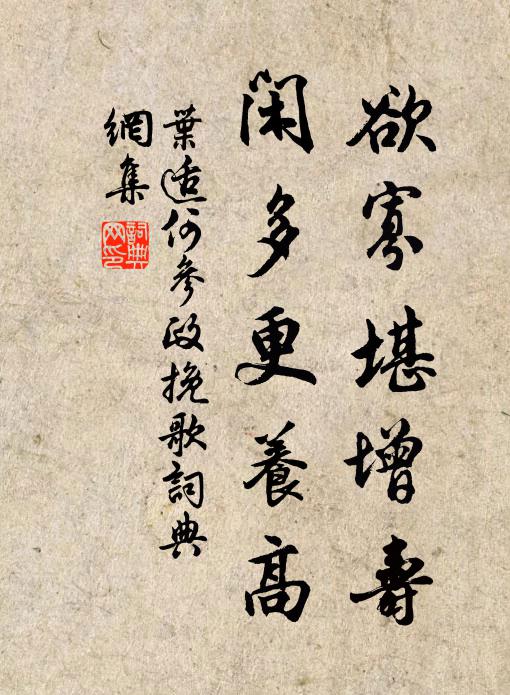 欲寡堪增壽
閑多更養高
葉适何參政挽歌詞典
網集
詞典
网印